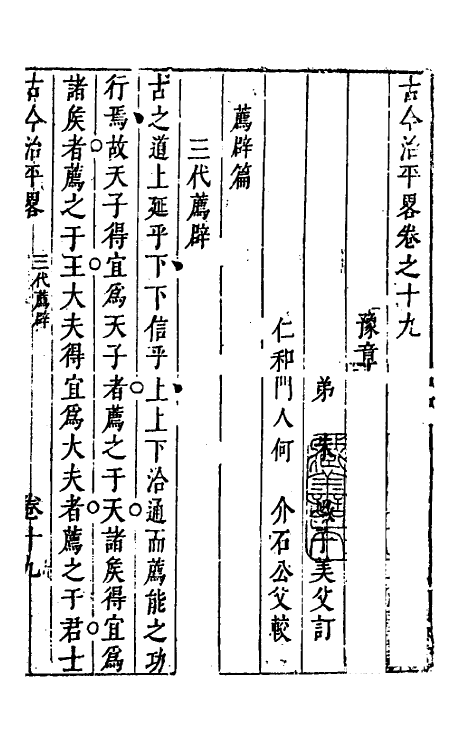 古今治平畧卷之十九
豫章
弟 子美父訂
仁和門人何 介石公父較
薦辟篇
三代薦辟
古之道上延乎下下信乎上上下洽通而薦能之功
行焉故天子得宜爲天子者薦之于天諸矦得宜爲
諸矦者薦之于王大夫得宜爲大夫者薦之于君士
古今治平畧 三代薦辟 卷十九